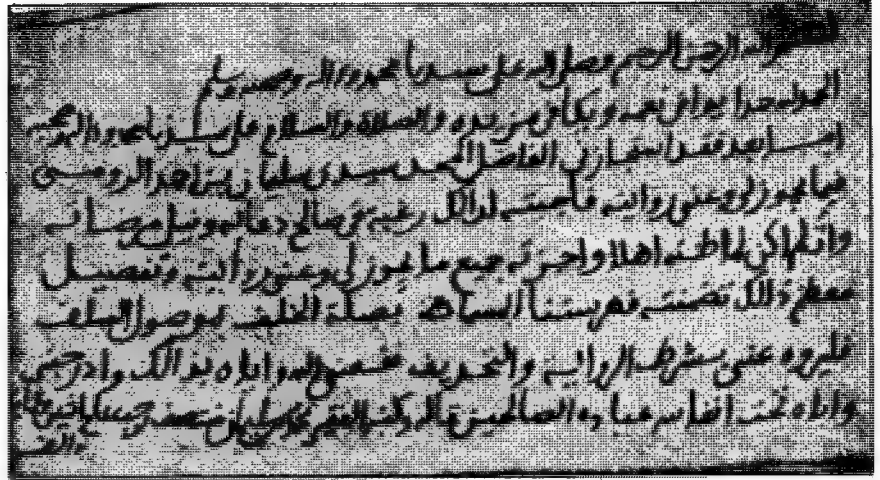 الله الرحمن الرحيم وصلى الله على سيدنا محمد وءاله وصحبه وسلم
الحمد لله حمدا يوافي نعمه ويكافئ مزيده والصلاة والسلام على سيدنا محمد وءاله وصحبه
اما بعد فقد استجازني الفاضل سيدي سليمان بن احمد
فيما يجوز لي وعني روايته فاجبته لذالك رغبة في صالح دعائه ونيل مرضاته
وان لم اكن لذا اهلا واجزته جميع ما يجوز لي وعني روايته وتفصيل
معظم ذالك تضمنته فهرستنا صلة الخلف بموصول السلف
فليروه عني بشرط الرواية والتحديث الله واياه بذالك وادرجني
واياه تحت عباده الصالحين قاله وكتبه الفقير محمد بن سليمان